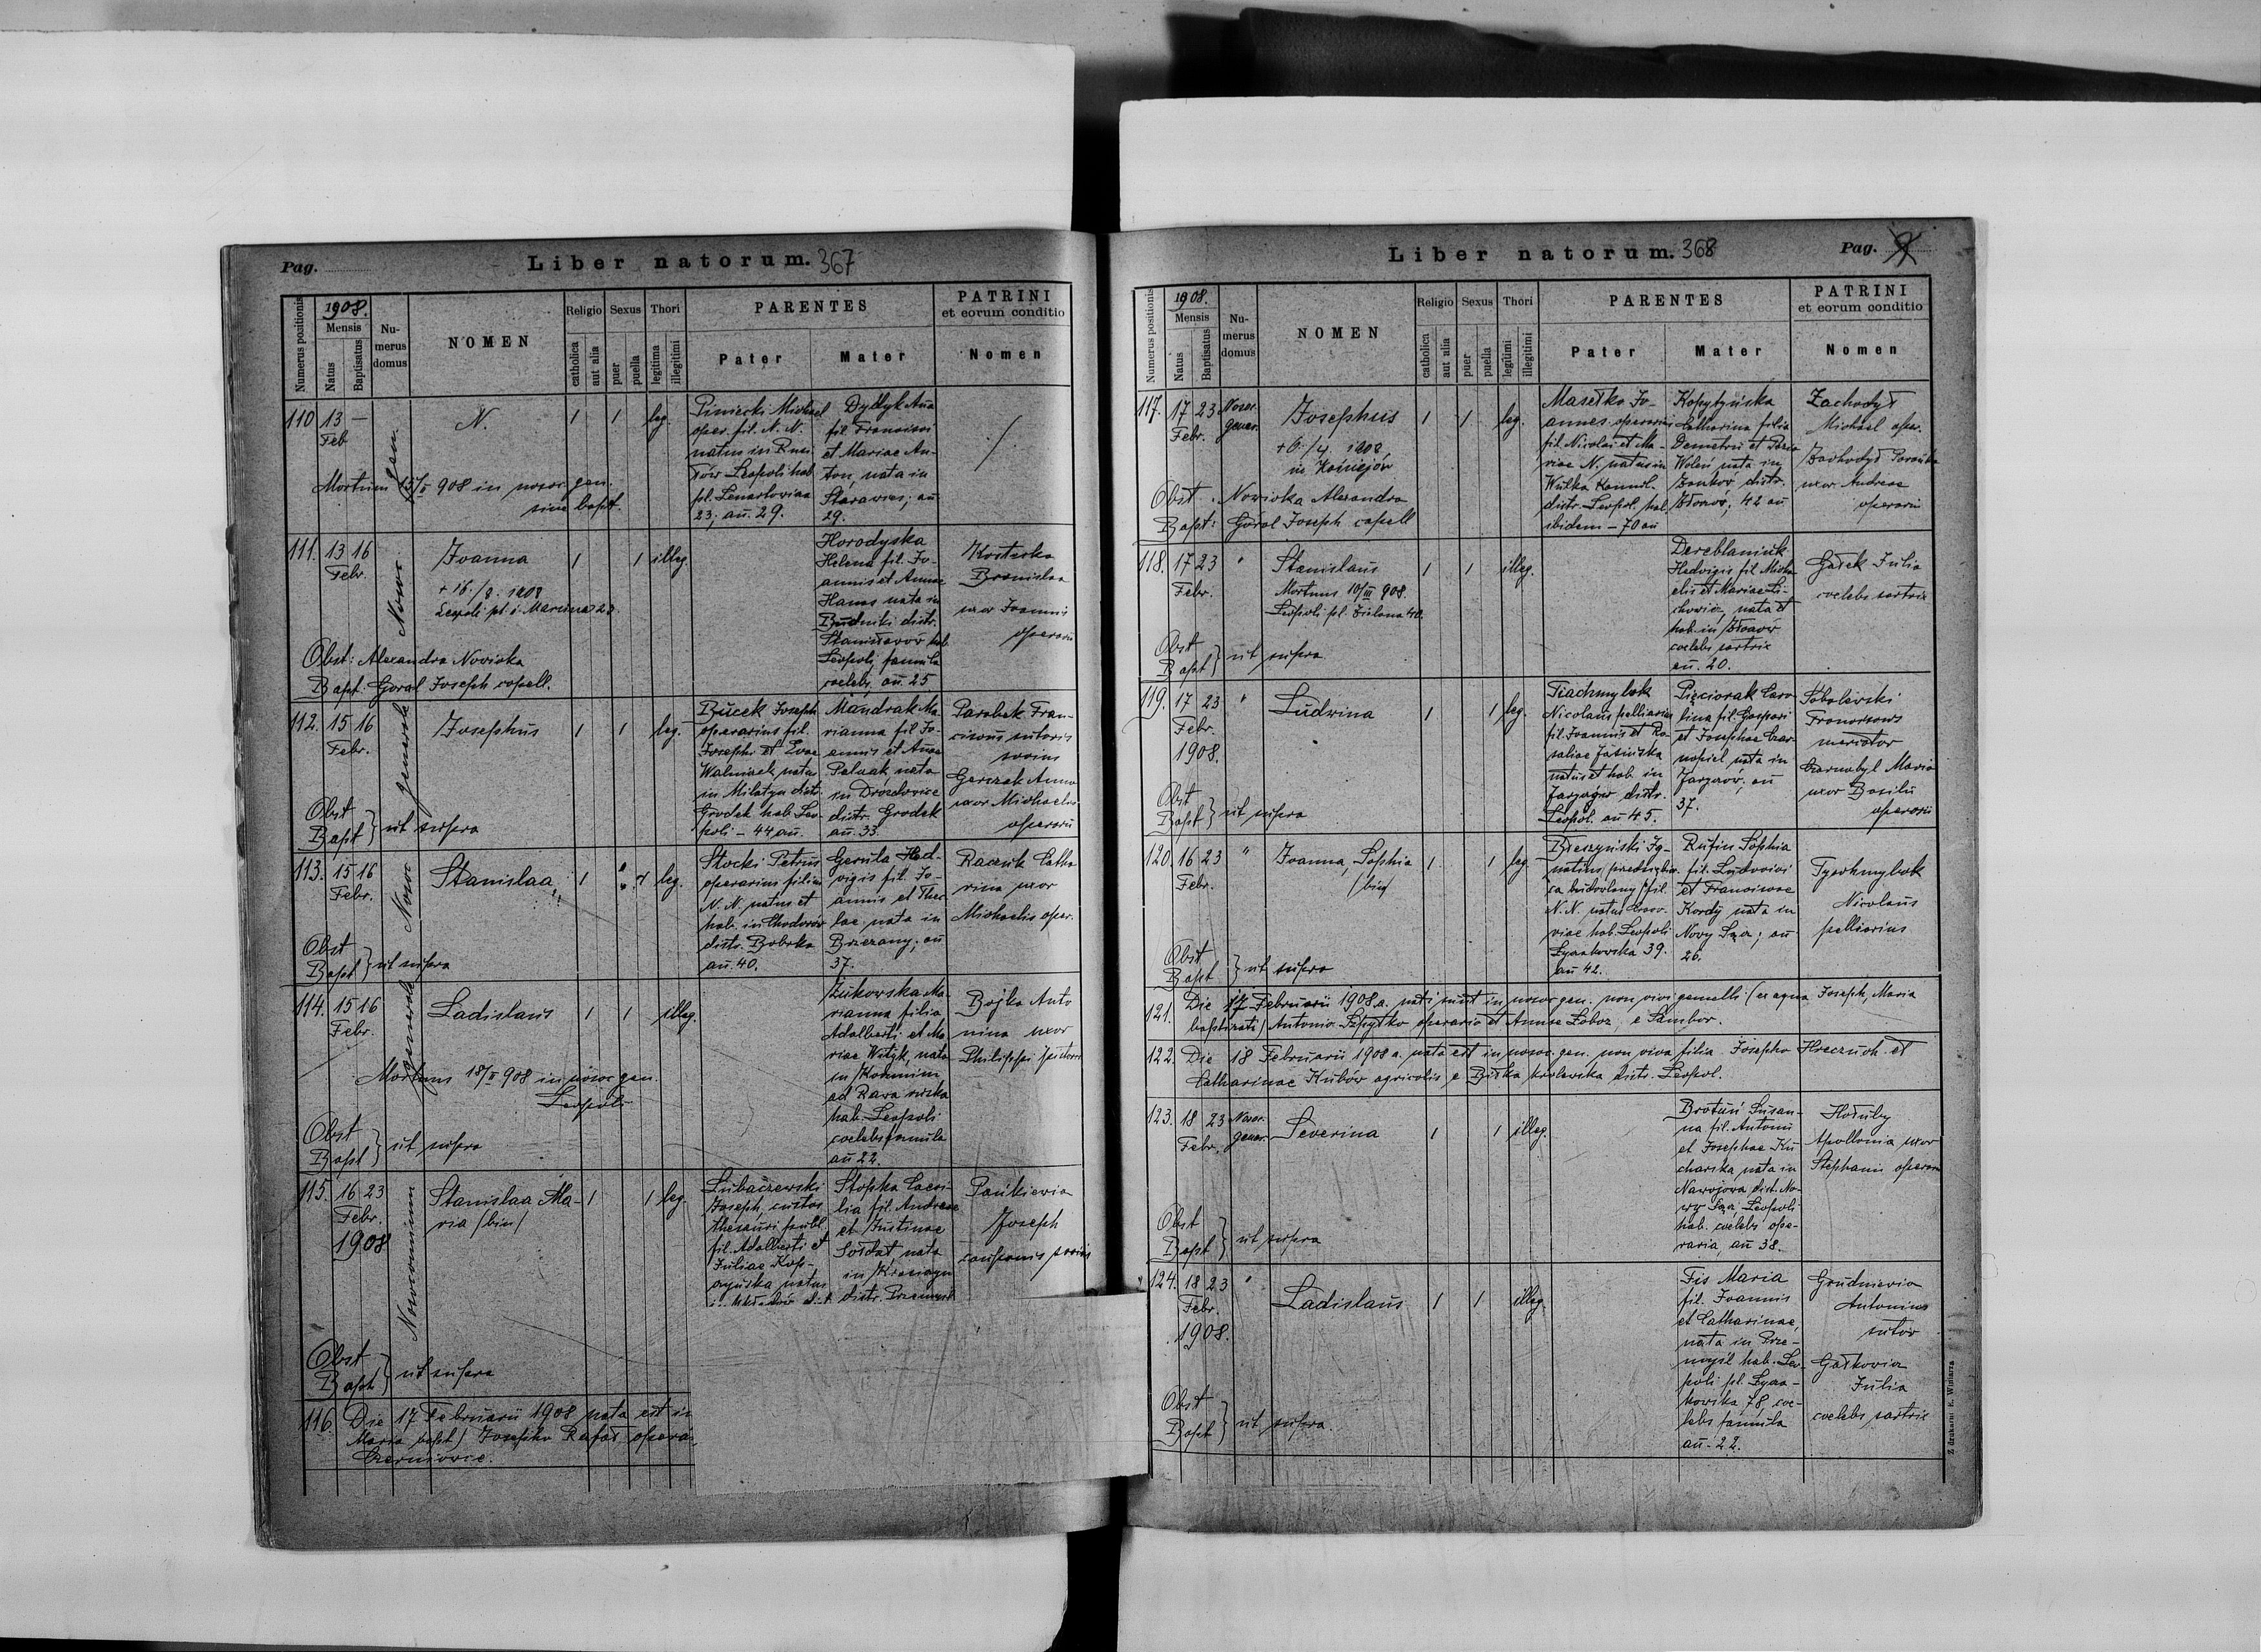 Pag.
Liber natorum. 367
Numerus positionis
1908.
Mensis
Natus
Baptisatus
Nu-
merus
domus
NOMEN
Religio
catholica
aut alia
Sexus
puer
puella
Thori
legitima
illegitimi
PARENTES
Pater
Mater
PATRINI
et eorum conditio
Nomen
110 13 — Feb
N.
1 1 leg.
Piniecki Michael
oper. fil. N. N.
natus in
Leopoli hab.
pl.
23; añ. 29.
Dydyk Aña
fil. Francisci
et Mariae An-
ton, nata in
añ
29.
Mortuus 15/II 908 in nosoc. gen.
sine bapt.
Nosoc. gen.
111. 13 16 Febr.
Joanna
+ 16./8. 1908
Leopoli pl. S. Marcina 22.
1 1 illeg.
Horodyska
Helena fil. Jo-
annis et Annae
Hanas nata in
Budniki distr.
Stanisławów hab.
Leopoli, famula
coelebs, añ. 25
Kosteska
Bronislaa
uxor Joannis
operarii
Obst: Alexandra Nowicka
Bapt. Goral Joseph capell.
112. 15 16 Febr.
Josephus
1 1 leg.
Bucek Joseph
operarius fil.
Josephi et Evae
natus
in Milatyn distr.
Grodek hab. Leo-
poli – 44 añ.
Mandrak Ma-
rianna fil Jo-
annis et Anae
nata
in Drozdowice
distr. Grodek
añ. 33.
Parobek Fran-
ciscus sutoris
socius
Gerczak Anna
uxor Michaelis
operarii
Obst
Bapt } ut supra
113. 15 16 Febr.
Stanislaa
1 1 leg.
Stocki Petrus
operarius filius
N. N. natus et
hab. in Chodorów
distr. Bobrka
añ. 40.
Gerula Hed-
vigis fil. Jo-
annis et Thec-
lae nata in
Brzezany; añ
37.
Raczuk Catha
rina uxor
Michaelis oper.
Obst
Bapt } ut supra
114. 15 16 Febr.
Ladislaus
1 1 illeg.
Żukowska Ma-
rianna filia
Adalberti et Ma-
riae Wityk, nata
in
ad Rawa ruska
hab. Leopoli
coelebs famula
añ 22.
Bojko Anto
nina uxor
Philippi
Mortuus 18/II 908 in nosoc gen.
Leopoli
Obst
Bapt } ut supra
115. 16 23 Febr. 1908
Nosocomium
Stanislaa Ma-
ria /bin/
1 1 leg.
Lubaczewski
Joseph, custos
thesauri publ.
fil. Adalberti et
Juliae Kop-
natus
Stopka Caeci-
lia fil. Andreae
et Justinae
Sołdat nata
in
distr. Przemysl
Pańkiewicz
Joseph
cauponis socius
Obst
Bapt } ut supra
116. Die 17 Februarii 1908 nata est in
Maria bapt.) Josepho Rafał opera-
Czerniowic.
Liber natorum. 368
Pag.
Numerus positionis
1908.
Mensis
Natus
Baptisatus
Nu-
merus
domus
NOMEN
Religio
catholica
aut alia
Sexus
puer
puella
Thori
legitimi
illegitimi
PARENTES
Pater
Mater
PATRINI
et eorum conditio
Nomen
117. 17 23 Febr.
Nosoc. gener.
Josephus
+ 6./4 1908
in
1 1 leg.
Masełko Jo-
annes operarius
fil. Nicolai et Ma-
riae N. natus in
Wulka
distr. Leopol. hab.
ibidem – 70 añ
Kopytyńska
Catharina filia
Demetri et
nata in
distr.
Złoczów; 42 añ.
Zachodył
Michael oper.
uxor Andreae
operarii
Obst. Nowicka Alexandra
Bapt: Goral Joseph capell
118. 17 23 Febr.
"
Stanislaus
Mortuus 10/III 908.
Leopoli pl. Zielona 40.
1 1 illeg.
Dereblaniuk
Hedvigis fil Micha-
elis et Mariae Li-
chowicz, nata et
hab. in Złoczów
coelebs sartrix
añ. 20.
Gałek Julia
coelebs sartrix
Obst
Bapt } ut supra
119. 17 23 Febr. 1908.
"
Ludwina
1 1 leg.
Tiachmybok
Nicolaus pelliarius
fil. Joannis et Ro-
saliae Jasińska
natus et hab in
distr.
Leopol. añ 45.
Pięciorak Caro-
lina fil. Gaspari
et Josephae Czar-
nopiel, nata in
añ
37.
Sobolewski
Franciscus
mercator
Czarnobyl Maria
uxor Basilii
operarii
Obst
Bapt } ut supra
120. 16 23 Febr.
"
Joanna, Sophia
/bin/
1 1 leg
Bieszynski Ig-
natius /przedsiębior-
ca budowlany/ fil.
N. N. natus Craco-
viae hab. Leopoli
Łyczakowska 39.
añ 42.
Rufin Sophia
fil. Ludovici
et Franciscae
Kordÿ nata in
Nowy Sącz; añ
26.
Tyachmybok
Nicolaus
pelliarius
Obst
Bapt } ut supra
121. Die 17 Februarii 1908 a. nati sunt in nosoc gen. non vivi gemelli (ex aqua Joseph, Maria
baptizati) Antonio Szpytko operario et Annae Łoboz, e Sambor.
122. Die 18 Februarii 1908 a. nata est in nosoc. gen. non viva filia Josepho Hreczuch et
Catharinae Kubów agricolis e Biłka krolewska distr. Leopol.
123. 18 23 Febr.
Nosoc. gener.
Severina
1 1 illeg.
Brotuń Susan-
na fil. Antonii
et Josephae Ku
charska nata in
Nawojowa dist. No-
wy Sącz, Leopoli
hab. coelebs ope-
raria, añ 38.
Hołuby
Apollonia uxor
Stephani operarii
Obst
Bapt } ut supra
124. 18 23 Febr. 1908.
"
Ladislaus
1 1 illeg.
Fis Maria
fil. Joannis
et Catharinae,
nata in Prze-
mysl hab. Leo-
poli pl. Łycza-
kowska 78, coe-
lebs famula
añ. 22.
Grudniewicz
Antonius
sutor
Gałkowicz
Julia
coelebs sartrix
Obst
Bapt } ut supra.
Z drukarni E. Winiarza